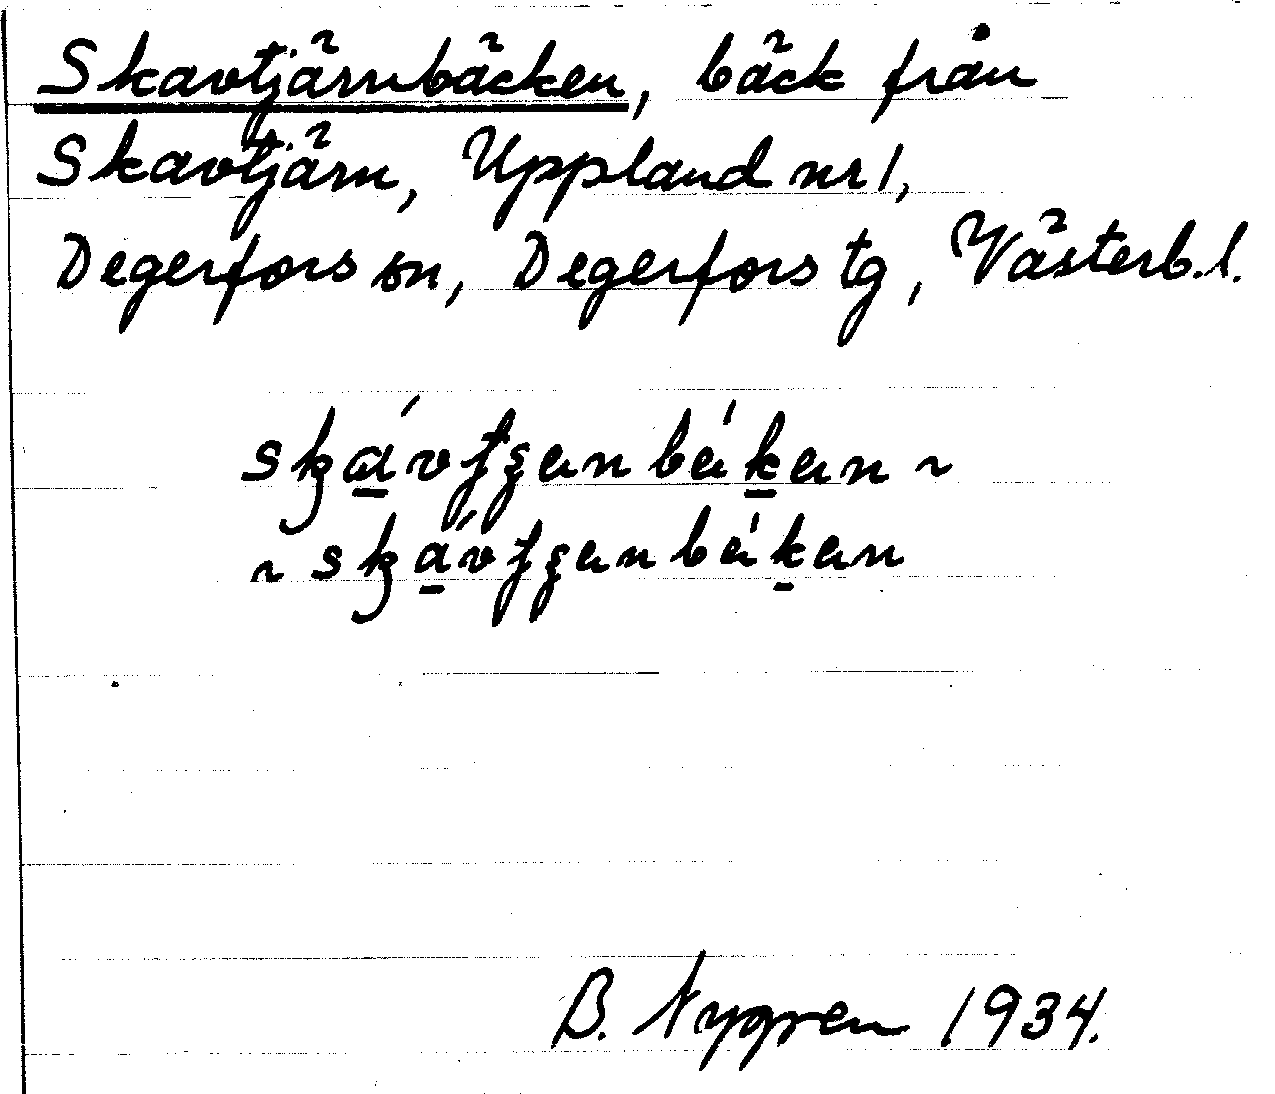 Skavtjärnbäcken, bäck från
Skavtjärn, Uppland nr 1,
Degerfors sn, Degerfors tg, Västerb. l.
B. Nygren 1934.